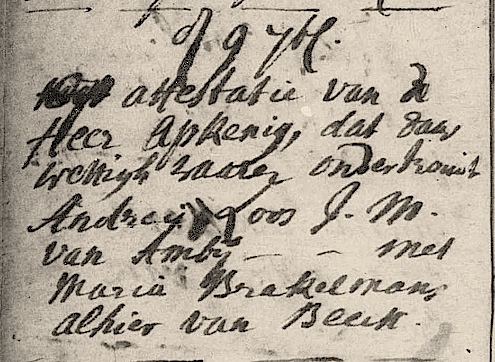 d 9 7br.
attestatie van de
Heer Apkenig, dat daar
wettigh waaren ondertrouwt
Andreis Loos J. M.
van Amby - - met
Maria Brakelmans
alhier van Beeck.